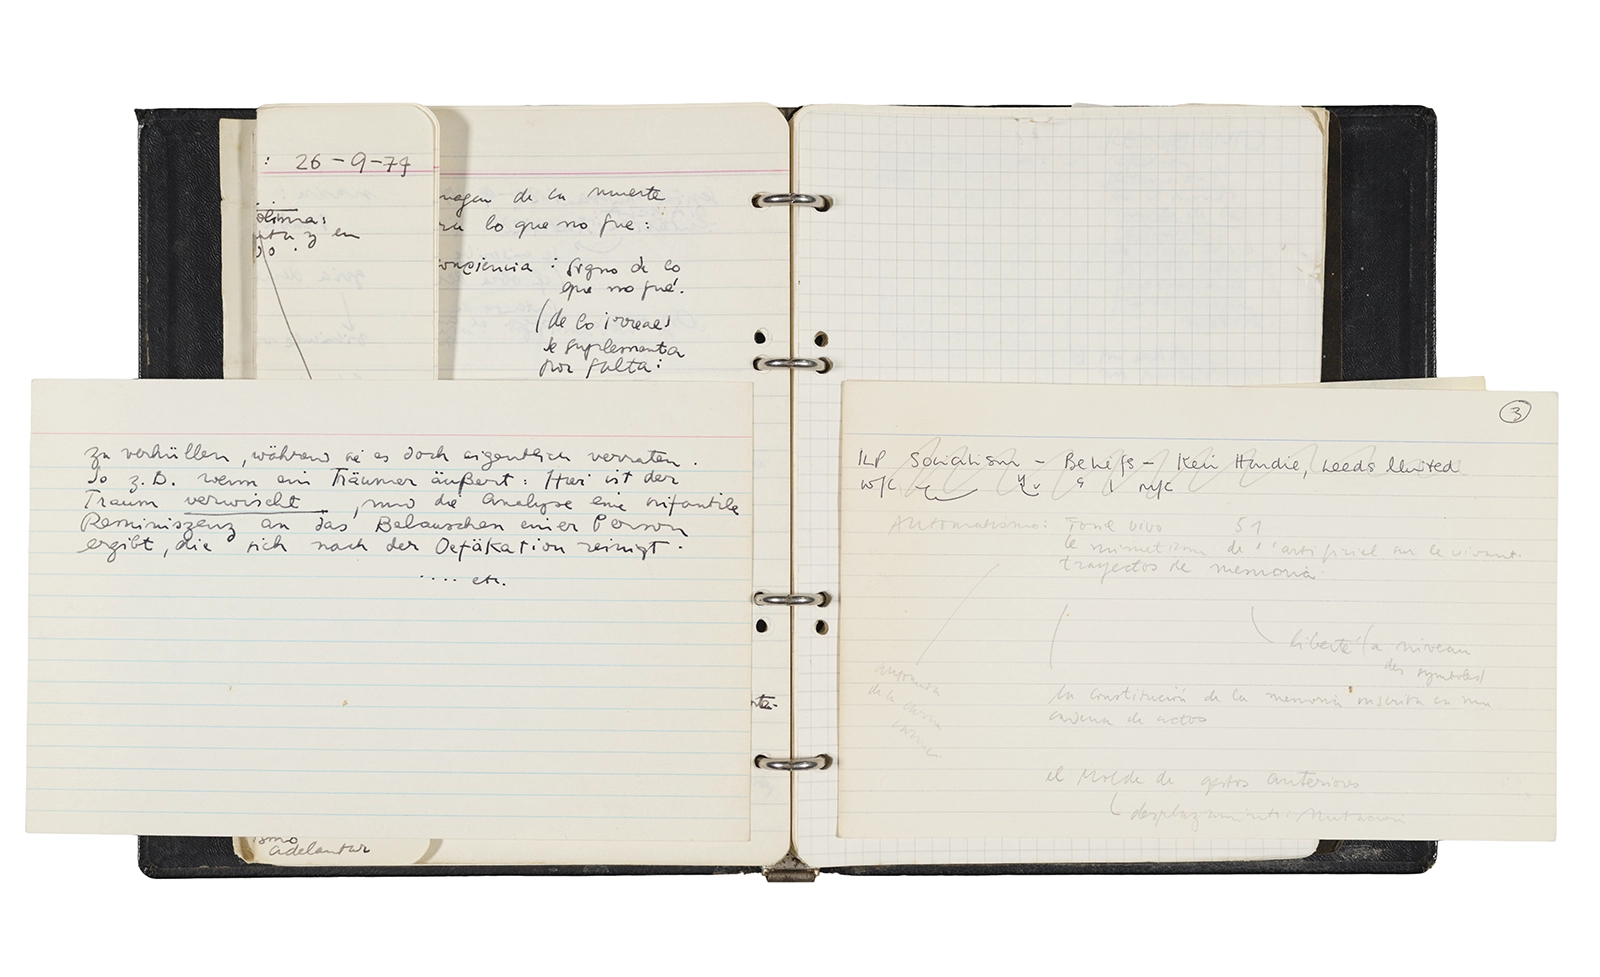 : 26-9-79
magen de la muerte
ra lo que no fue :
onciencia : signo de lo
que no fué.
(de lo irreal)
se suplementa
por falta :
y en
zu verhüllen, während sie es doch eigentlich verraten.
So z. B. wenn ein Träumer äußert: Hier ist der
Traum verwischt, und die Analyse eine infantile
Reminiszenz an das Belauschen einer Person
ergibt, die sich nach der Defäkation reinigt.
.... etc.
ismo
adelantar
3
ILP Socialism - Beliefs - Keir Hardie, Leeds United
w/c
Automatismo: Tone vivo 51
le mimetism de l'artificial sur le vivant.
trayectos de memoria
liberté (a niveau
des symboles)
de la
la constitución de la memoria inscrita en una
cadena de actos
el molde de gestos anteriores
desplazamiento: Mutación